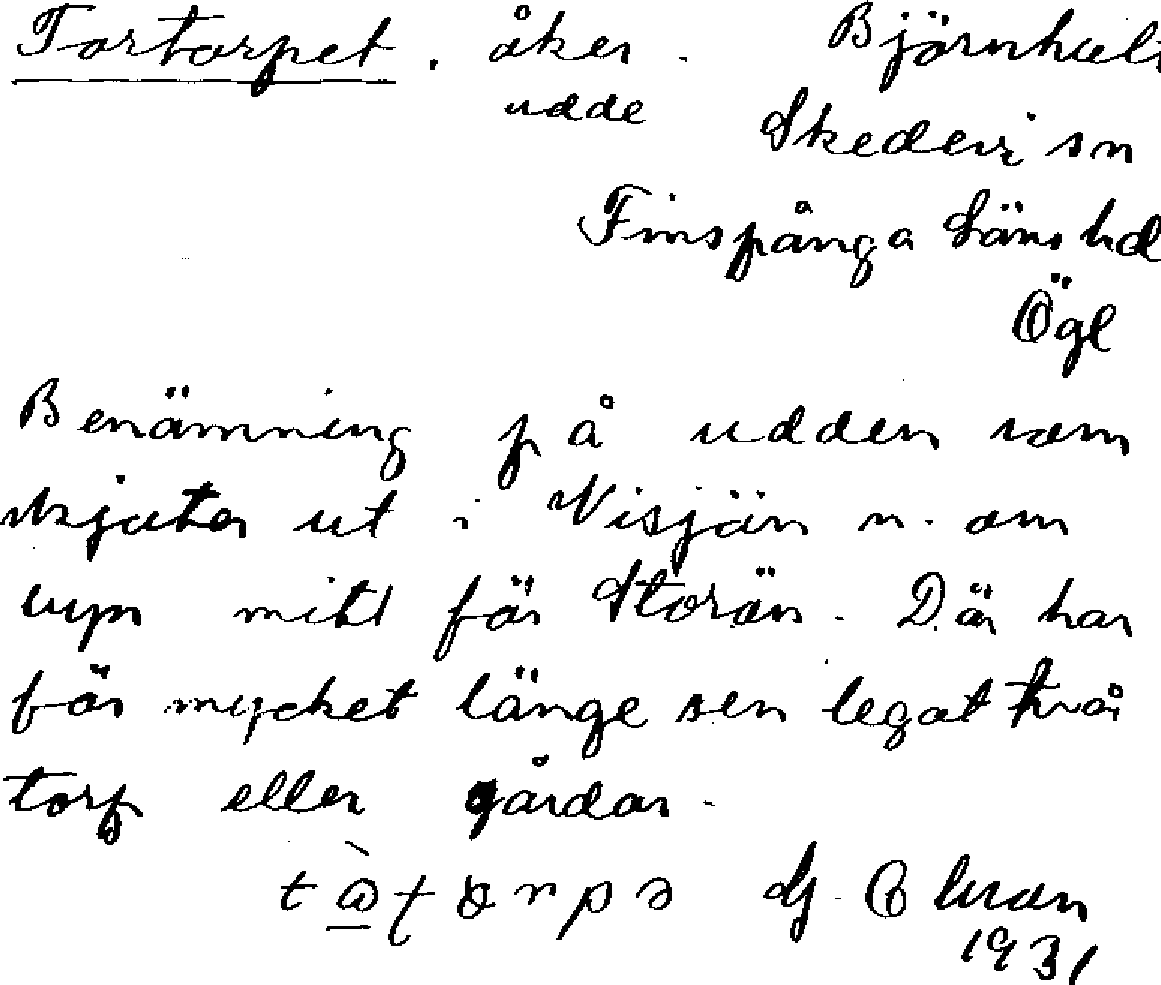 Tortorpet. åker. Björnhult
udde Skedevi sn
Finspånga läns hd
Ögl
Benämning på udden som
skjuter ut i Visjön n. om
byn mitt för Storön. Där har
för mycket länge sen legat två
torp eller gårdar.
G. Ekman
1931